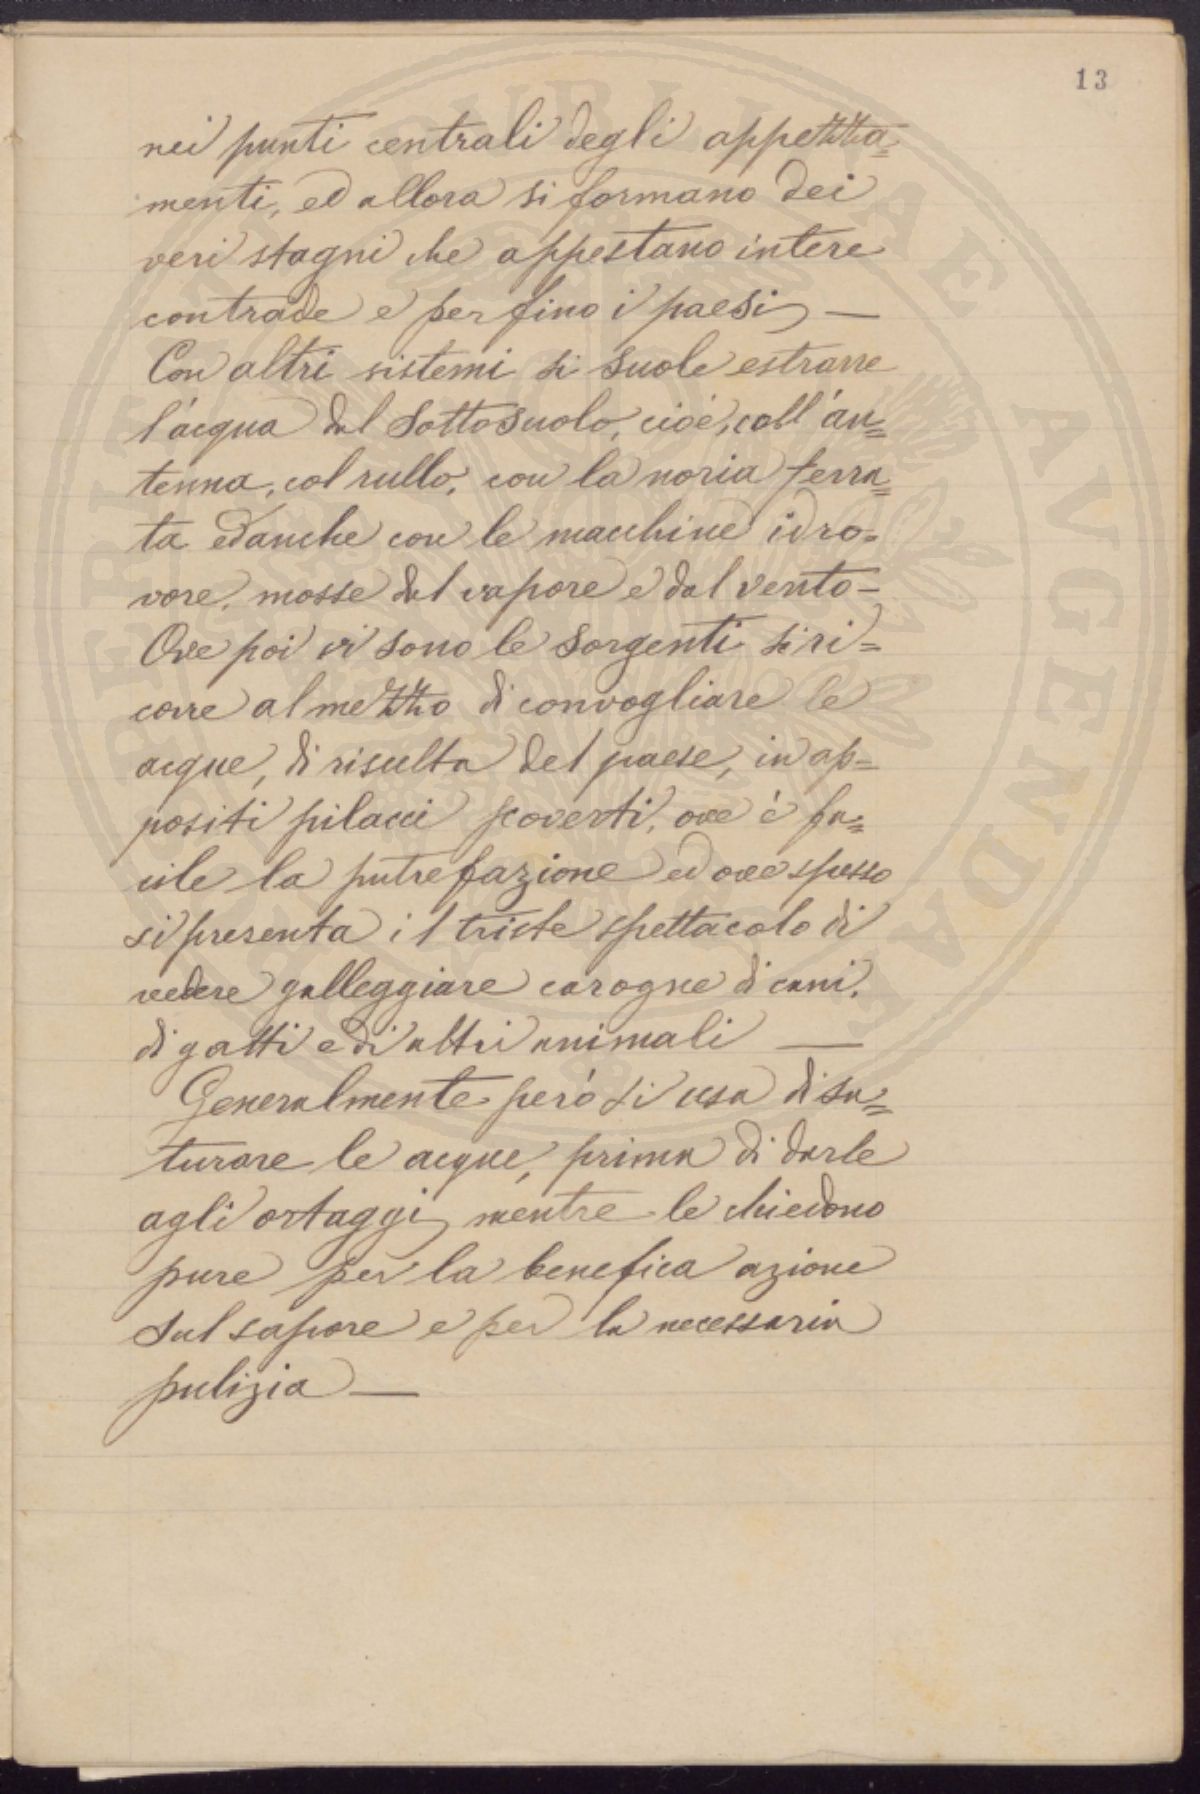 13
nei punti centrali degli appezza=
menti, ed allora si formano dei
veri stagni che appestano intere
contrade e perfino i paesi —
Con altri sistemi si suole estrarre
l'acqua dal sottosuolo, cioè, coll'an=
tenna, col rullo, con la noria ferra=
ta ed anche con le macchine idro=
vore, mosse dal vapore e dal vento –
Ove poi vi sono le sorgenti si ri=
corre al mezzo di convogliare le
acque, di risulta del paese, in ap=
positi pilacci scoverti, ove è fa=
cile la putrefazione ed ove spesso
si presenta il triste spettacolo di
vedere galleggiare carogne di cani,
di gatti e di altri animali —
Generalmente però si usa di sa=
turare le acque, prima di darle
agli ortaggi, mentre le chiedono
pure per la benefica azione
sul sapore e per la necessaria
pulizia —